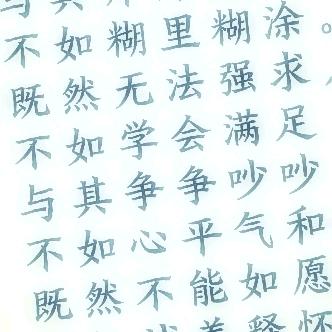 不如糊里糊涂。
既然无法强求
不如学会满足
与其争争吵吵
不如心平气和
既然不能如愿